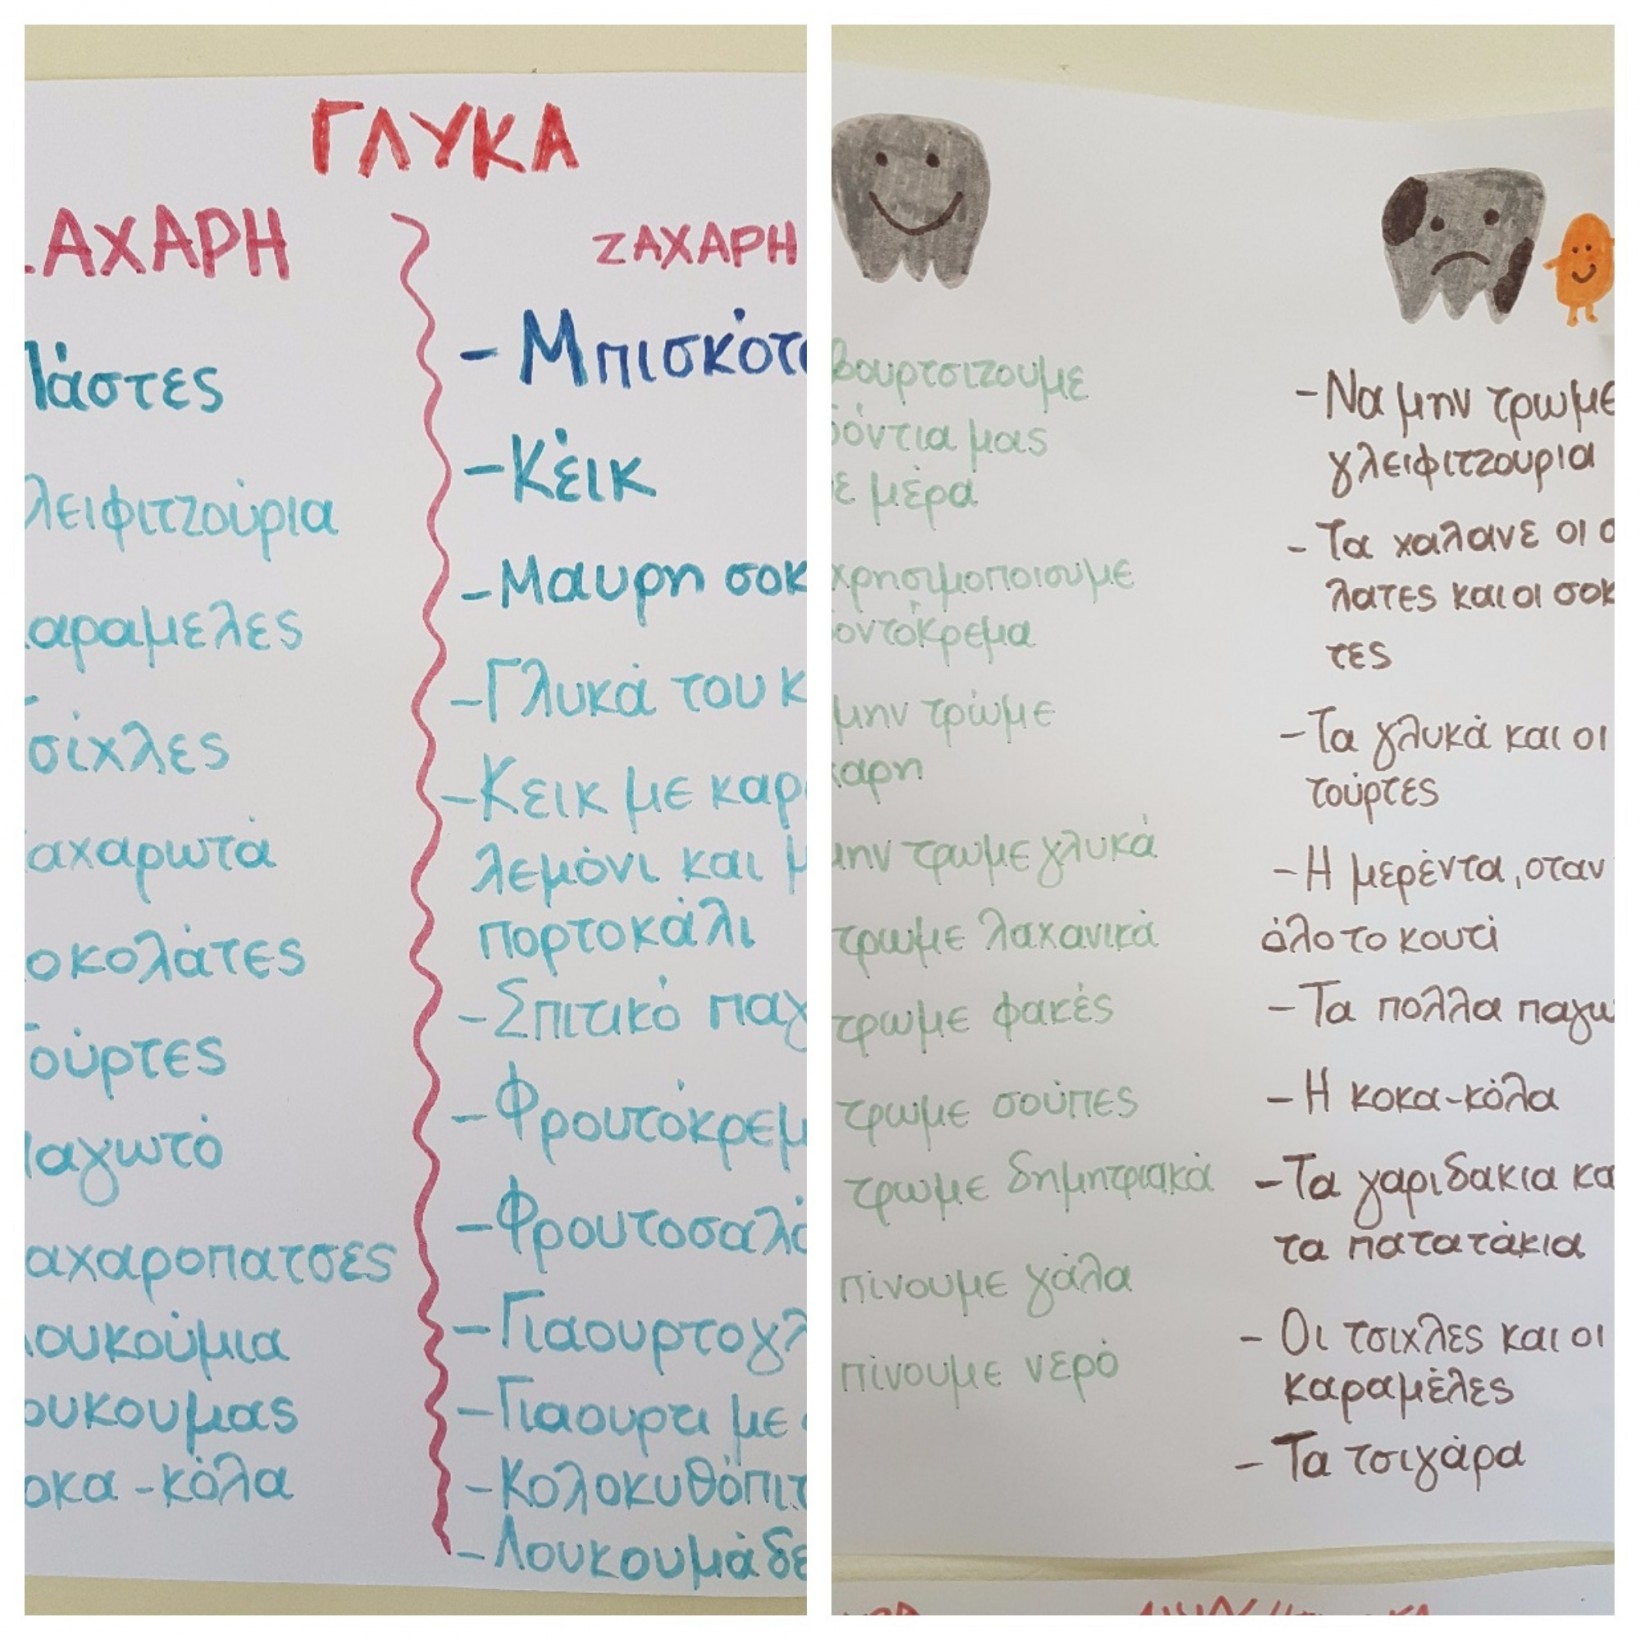 ΓΛΥΚΑ
ΑΧΑΡΗ
άστες
λειφιτζούρια
αραμελες
σίχλες
αχαρωτά
οκολάτες
ούρτες
αγωτό
αχαροπατσες
ουκούμια
ουκουμας
οκα-κόλα
ΖΑΧΑΡΗ
- Μπισκότ
- Κέικ
- Μαυρη σοκ
- Γλυκά του κ
- Κεικ με καρ
λεμόνι και μ
πορτοκάλι
- Σπιτικό παγ
- Φρουτόκρεμ
- Φρουτοσαλά
- Γιαουρτογλ
- Γιαουρτι με
- Κολοκυθόπιτ
- Λουκουμάδε
βουρτσιζουμε
δόντια μας
ε μέρα
χρησιμοποιουμε
οντόκρεμα
μην τρώμε
χαρη
μην τρωμε γλυκά
τρωμε λαχανικά
τρωμε φακές
τρωμε σούπες
τρωμε δημητριακά
πίνουμε γάλα
πίνουμε νερό
- Να μην τρωμε
γλειφιτζουρια
- Τα χαλανε οι σ
λατες και οι σοκ
τες
- Τα γλυκά και οι
τούρτες
- Η μερέντα, οταν
όλο το κουτί
- Τα πολλα παγω
- Η κοκα-κόλα
- Τα γαριδακια κα
τα πατατάκια
- Οι τσιχλες και οι
καραμέλες
- Τα τσιγάρα